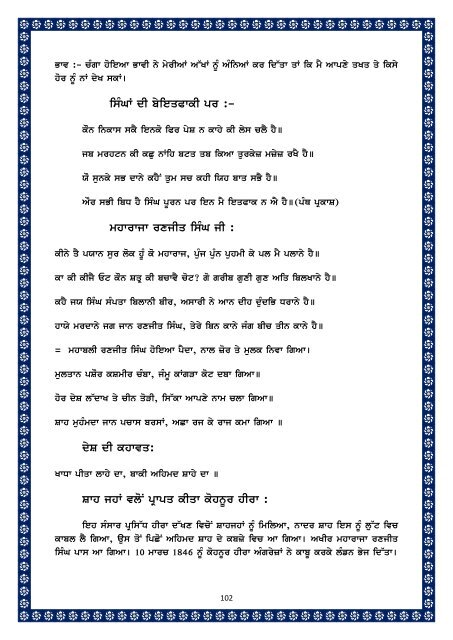 ਭਾਵ :- ਚੰਗਾ ਹੋਇਆ ਭਾਵੀ ਨੇ ਮੇਰੀਆਂ ਅੱਖਾਂ ਨੂੰ ਅੰਨਿਆਂ ਕਰ ਦਿੱਤਾ ਤਾਂ ਕਿ ਮੈ ਆਪਣੇ ਤਖਤ ਤੇ ਕਿਸੇ
ਹੋਰ ਨੂੰ ਨਾਂ ਦੇਖ ਸਕਾਂ।
ਸਿੰਘਾਂ ਦੀ ਬੇਇਤਫਾਕੀ ਪਰ :-
ਕੌਨ ਨਿਕਾਸ ਸਕੈ ਇਨਕੋ ਫਿਰ ਪੇਸ਼ ਨ ਕਾਹੇ ਕੀ ਲੇਸ ਚਲੈ ਹੈ॥
ਜਬ ਮਰਹਟਨ ਕੀ ਕਛੁ ਨਾਂਹਿ ਬਟਤ ਤਬ ਕਿਆ ਤੁਰਕੇਜ਼ ਮਜ਼ੇਜ਼ ਰਖੈ ਹੈ॥
ਯੌ ਸੁਨਕੇ ਸਭ ਦਾਨੇ ਕਹੈਂ ਤੁਮ ਸਚ ਕਹੀ ਯਿਹ ਬਾਤ ਸਭੈ ਹੈ॥
ਔਰ ਸਭੀ ਬਿਧ ਹੈ ਸਿੰਘ ਪੂਰਨ ਪਰ ਇਨ ਮੈ ਇਤਫਾਕ ਨ ਐ ਹੈ॥(ਪੰਥ ਪ੍ਰਕਾਸ਼)
ਮਹਾਰਾਜਾ ਰਣਜੀਤ ਸਿੰਘ ਜੀ :
ਕੀਨੇ ਤੈ ਪਯਾਨ ਸੁਰ ਲੋਕ ਹੂੰ ਕੋ ਮਹਾਰਾਜ, ਪੁੰਜ ਪੁੰਨ ਪੁਹਮੀ ਕੇ ਪਲ ਮੈ ਪਲਾਨੇ ਹੈ॥
ਕਾ ਕੀ ਕੀਜੈ ਓਟ ਕੌਨ ਸ਼ਤ੍ਰੁ ਕੀ ਬਚਾਵੈ ਚੋਟ? ਗੋ ਗਰੀਬ ਗੁਣੀ ਗੁਣ ਅਤਿ ਬਿਲਖਾਨੇ ਹੈ॥
ਕਹੈ ਜਯ ਸਿੰਘ ਸੰਪਤਾ ਬਿਲਾਨੀ ਬੀਰ, ਅਸਾਰੀ ਨੇ ਆਨ ਦੀਹ ਦੁੰਦਭਿ ਧਰਾਨੇ ਹੈ॥
ਹਾਯੇ ਮਰਦਾਨੇ ਜਗ ਜਾਨ ਰਣਜੀਤ ਸਿੰਘ, ਤੇਰੇ ਬਿਨ ਕਾਨੇ ਜੰਗ ਬੀਚ ਤੀਨ ਕਾਨੇ ਹੈ॥
= ਮਹਾਬਲੀ ਰਣਜੀਤ ਸਿੰਘ ਹੋਇਆ ਪੈਦਾ, ਨਾਲ ਜ਼ੋਰ ਤੇ ਮੁਲਕ ਨਿਵਾ ਗਿਆ।
ਮੁਲਤਾਨ ਪਸ਼ੌਰ ਕਸ਼ਮੀਰ ਚੰਬਾ, ਜੰਮੂ ਕਾਂਗੜਾ ਕੋਟ ਦਬਾ ਗਿਆ॥
ਹੋਰ ਦੇਸ਼ ਲੱਦਾਖ ਤੇ ਚੀਨ ਤੋੜੀ, ਸਿੱਕਾ ਆਪਣੇ ਨਾਮ ਚਲਾ ਗਿਆ॥
ਸ਼ਾਹ ਮੁਹੰਮਦਾ ਜਾਨ ਪਚਾਸ ਬਰਸਾਂ, ਅਛਾ ਰਜ ਕੇ ਰਾਜ ਕਮਾ ਗਿਆ ॥
ਦੇਸ਼ ਦੀ ਕਹਾਵਤ:
ਖਾਧਾ ਪੀਤਾ ਲਾਹੇ ਦਾ, ਬਾਕੀ ਅਹਿਮਦ ਸ਼ਾਹੇ ਦਾ ॥
ਸ਼ਾਹ ਜਹਾਂ ਵਲੋਂ ਪ੍ਰਾਪਤ ਕੀਤਾ ਕੋਹਨੂਰ ਹੀਰਾ :
ਇਹ ਸੰਸਾਰ ਪ੍ਰਸਿੱਧ ਹੀਰਾ ਦੱਖਣ ਵਿਚੋਂ ਸ਼ਾਹਜਹਾਂ ਨੂੰ ਮਿਲਿਆ, ਨਾਦਰ ਸ਼ਾਹ ਇਸ ਨੂੰ ਲੁੱਟ ਵਿਚ
ਕਾਬਲ ਲੈ ਗਿਆ, ਉਸ ਤੋਂ ਪਿਛੋਂ ਅਹਿਮਦ ਸ਼ਾਹ ਦੇ ਕਬਜ਼ੇ ਵਿਚ ਆ ਗਿਆ। ਅਖੀਰ ਮਹਾਰਾਜਾ ਰਣਜੀਤ
ਸਿੰਘ ਪਾਸ ਆ ਗਿਆ। 10 ਮਾਰਚ 1846 ਨੂੰ ਕੋਹਨੂਰ ਹੀਰਾ ਅੰਗਰੇਜ਼ਾਂ ਨੇ ਕਾਬੂ ਕਰਕੇ ਲੰਡਨ ਭੇਜ ਦਿੱਤਾ।
102